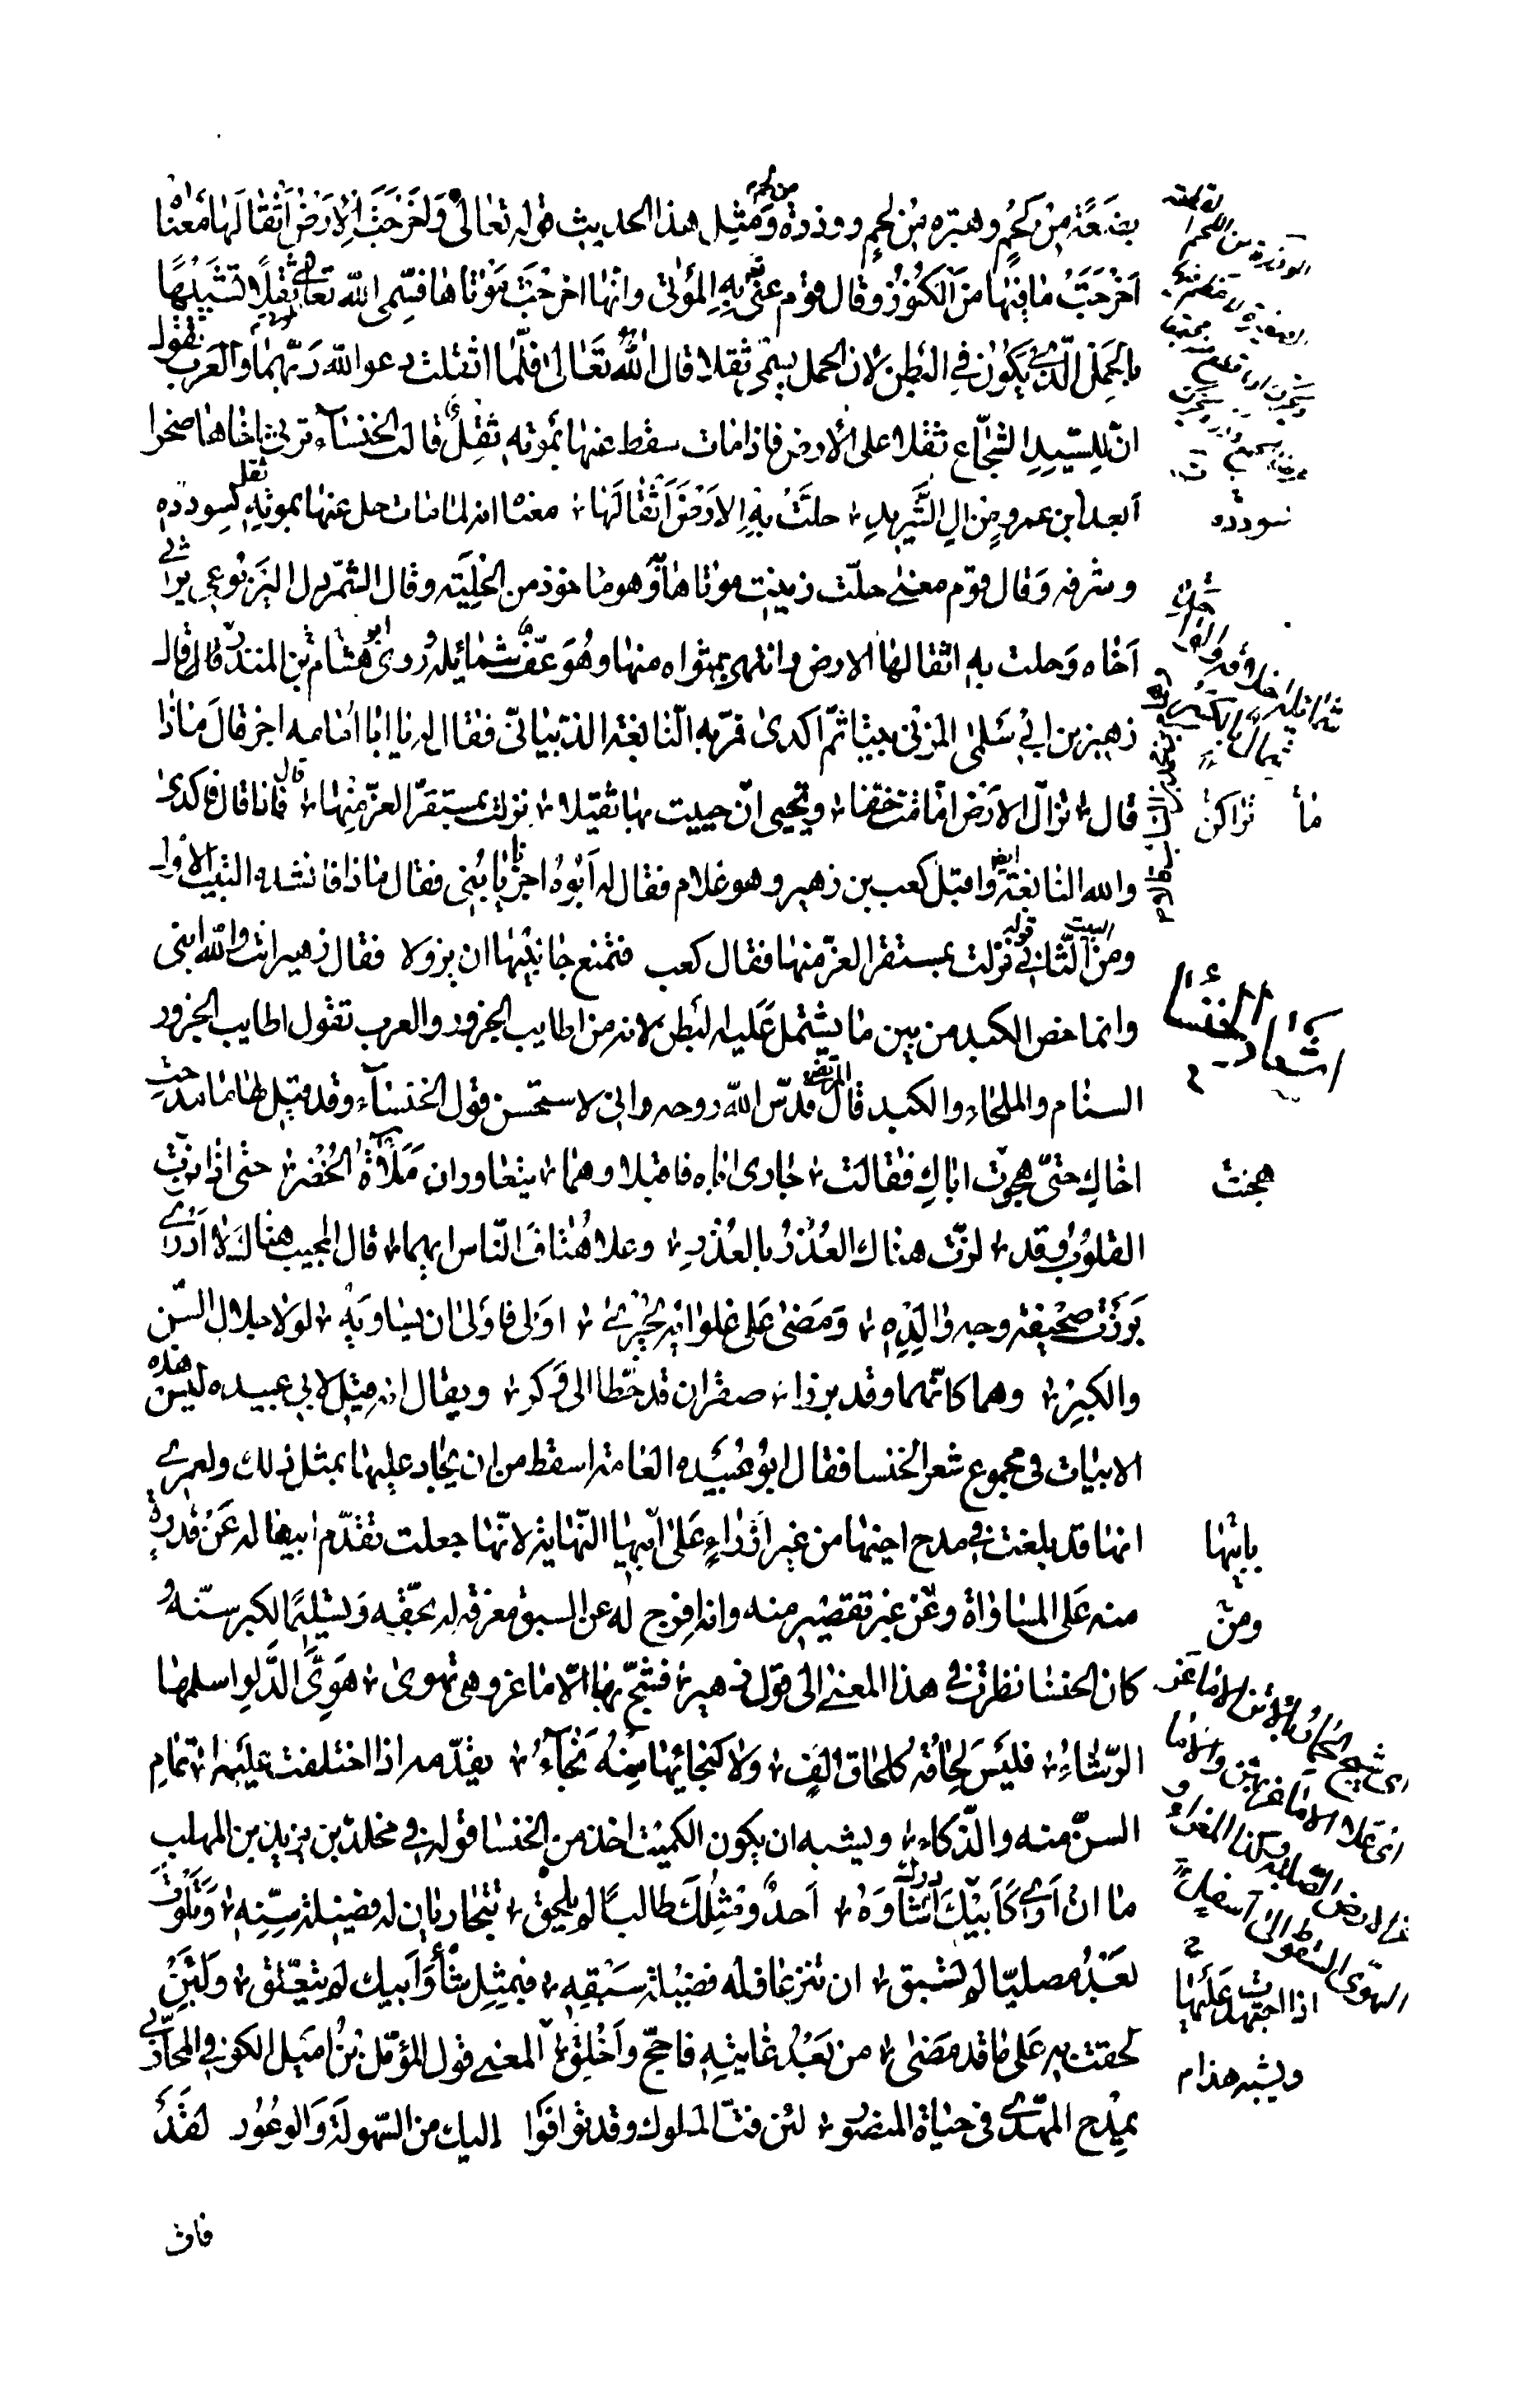 بضعة من لحم وهبرة من لحم ووذرة من لحم ومثل هذا الحديث قوله تعالى وَاَخْرَجَتِ الْاَرْضُ اَثْقالَها مَعْناهُ
اَخْرَجَتْ مَا فِيْهَا مِنَ الكُنُوْزِ وقال قوم عنى به الموتى وانها اخرجت موتاها فسمى الله تعالى ثقلا تشبيها
بالحمل الذي يكون في البطن لان الحمل يسمى ثقلا قال الله تعالى فلما اثقلت دعوا الله ربهما والعرب تقول
ان للسيد الشجاع ثقلا على الارض فاذا مات سقط عنها بموته ثقل قالت الخنساء ترثي اخاها صخرا
ابعد ابن عمرو من ال الشريد حلت به الارض اثقالها معناه انه لما مات حل عنها بموته ثقل لسودده
وشرفه وقال قوم معنى حلت زينت موتاها به وهو ماخوذ من الحلية وقال الشمردل اليربوعي يرثي
اخاه وحلت به اثقالها الارض وانتهى بمثواه منها وهو عف شمائله وروى ابو هشام بن المنذر قال قال
زهير بن ابي سلمى المزني بيتا ثم اكدى فمر به النابغة الذبياني فقال له يا ابا امامه اجز قال ماذا
قال تزال الارض اما مت خفا وتحيى ان حييت بها ثقيلا نزلت بمستقر العز منها فماذا قال فاكدى
والله النابغة ايضا واقبل كعب بن زهير وهو غلام فقال له ابوه اجز يا بني فقال ماذا فانشده البيت الاول
ومن البيت الثاني قوله نزلت بمستقر العز منها فقال كعب فتمنع جانبيها ان يزولا فقال زهير انت والله ابني
وانما خص الكبد من بين ما يشتمل عليه البطن لانه من اطايب الجزور والعرب تقول اطايب الجزور
السنام والملحاء والكبد قال المرتضى قدس الله روحه واني لاستحسن قول الخنساء وقد قيل لها ما مدحت
اخاك حتى هجوت اباك فقالت جارى اباه فاقبلا وهما يتعاوران ملاءة الحضر حتى اذا نزت
القلوب وقد لزت هناك العذر بالعذر وعلا هتاف الناس ايهما قال المجيب هناك لا ادري
برزت صحيفة وجه والده ومضى على غلوائه يجري اولى فاولى ان يساويه لولا جلال السن
والكبر وهما كانهما وقد برزا صقران قد حطا الى وكر ويقال انه قيل لابي عبيده ليس هذه
الابيات في مجموع شعر الخنسا فقال ابو عبيده العامة اسقط من ان يجاد عليها بمثل ذلك ولعمري
انها قد بلغت في مدح اخيها من غير ازراء على ابيها النهاية لانها جعلت تقدم ابيها له عن قدرة
منه على المساواة وعن غير تقصير منه وانه افرج له عن السبق معرفة له بحقه وتسليما لكبر سنه و
كان الخنسا نظرت في هذا المعنى الى قول زهير فشج بها الاماعز وهي تهوى هوي الدلو اسلمها
الرشاء فليس لحاقه كلحاق الف ولا كنجائها منه نجاء يقدمه اذا اختلفت عليها تمام
السن منه والذكاء ويشبه ان يكون الكميت اخذ من الخنسا قوله في مخلد بن يزيد بن المهلب
ما ان ارى كابيك ادرك شاوه احد ومثلك طالبا لم يلحق تتجاريان له فضيلة سنه وتلوت
بعد مصليا لم تسبق ان تنزعا فله فضيلة سبقه فبمثل شأو ابيك لم يتعلق ولئن
لحقت به على ما قد مضى من بعد غايته فاحج واخلق المعنى قول المؤمل بن اميل الكوفي المحاربي
بمدح المهدي في حياة المنصور لئن فت الملوك وقد توافوا اليك من السهولة والوعور لقد
فات
سودده
ما تراكن
اشعار الخنسا
هجنت
بابيها
ومن
اذا اجتهدت عليها
ويشبه هذا م